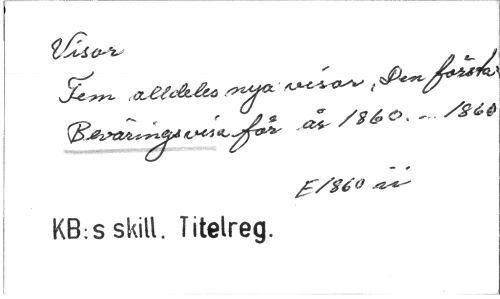 Visor
Fem alldeles nya visor, Den första
Beväringsvisa för år 1860. ... 1860
E 1860 ii
KB:s skill. Titelreg.